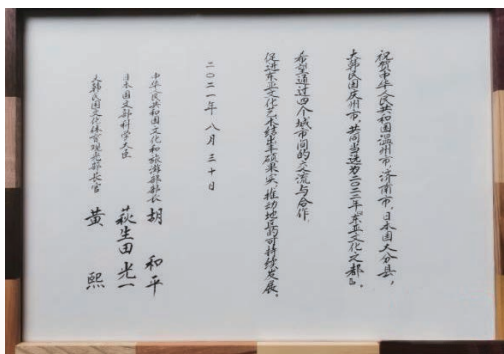 祝贺中华人民共和国温州市、济南市，日本国大分县，
大韩民国庆州市，共同当选为二〇二二年『东亚文化之都』。
希望通过四个城市间的交流与合作，
促进东亚文化艺术结出丰硕果实，推动地区的可持续发展。
二〇二一年八月三十日
中华人民共和国文化和旅游部部长 胡 和平
日本国文部科学大臣 萩生田 光一
大韩民国文化体育观光部长官 黄 熙